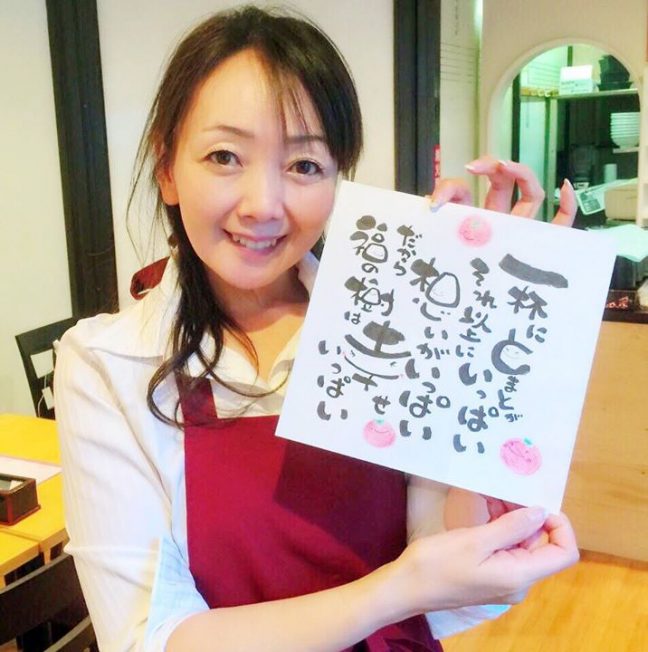 一杯にとまとが
それ以上にいっぱい
想いがいっぱい
だから
福の樹は幸せ
いっぱい